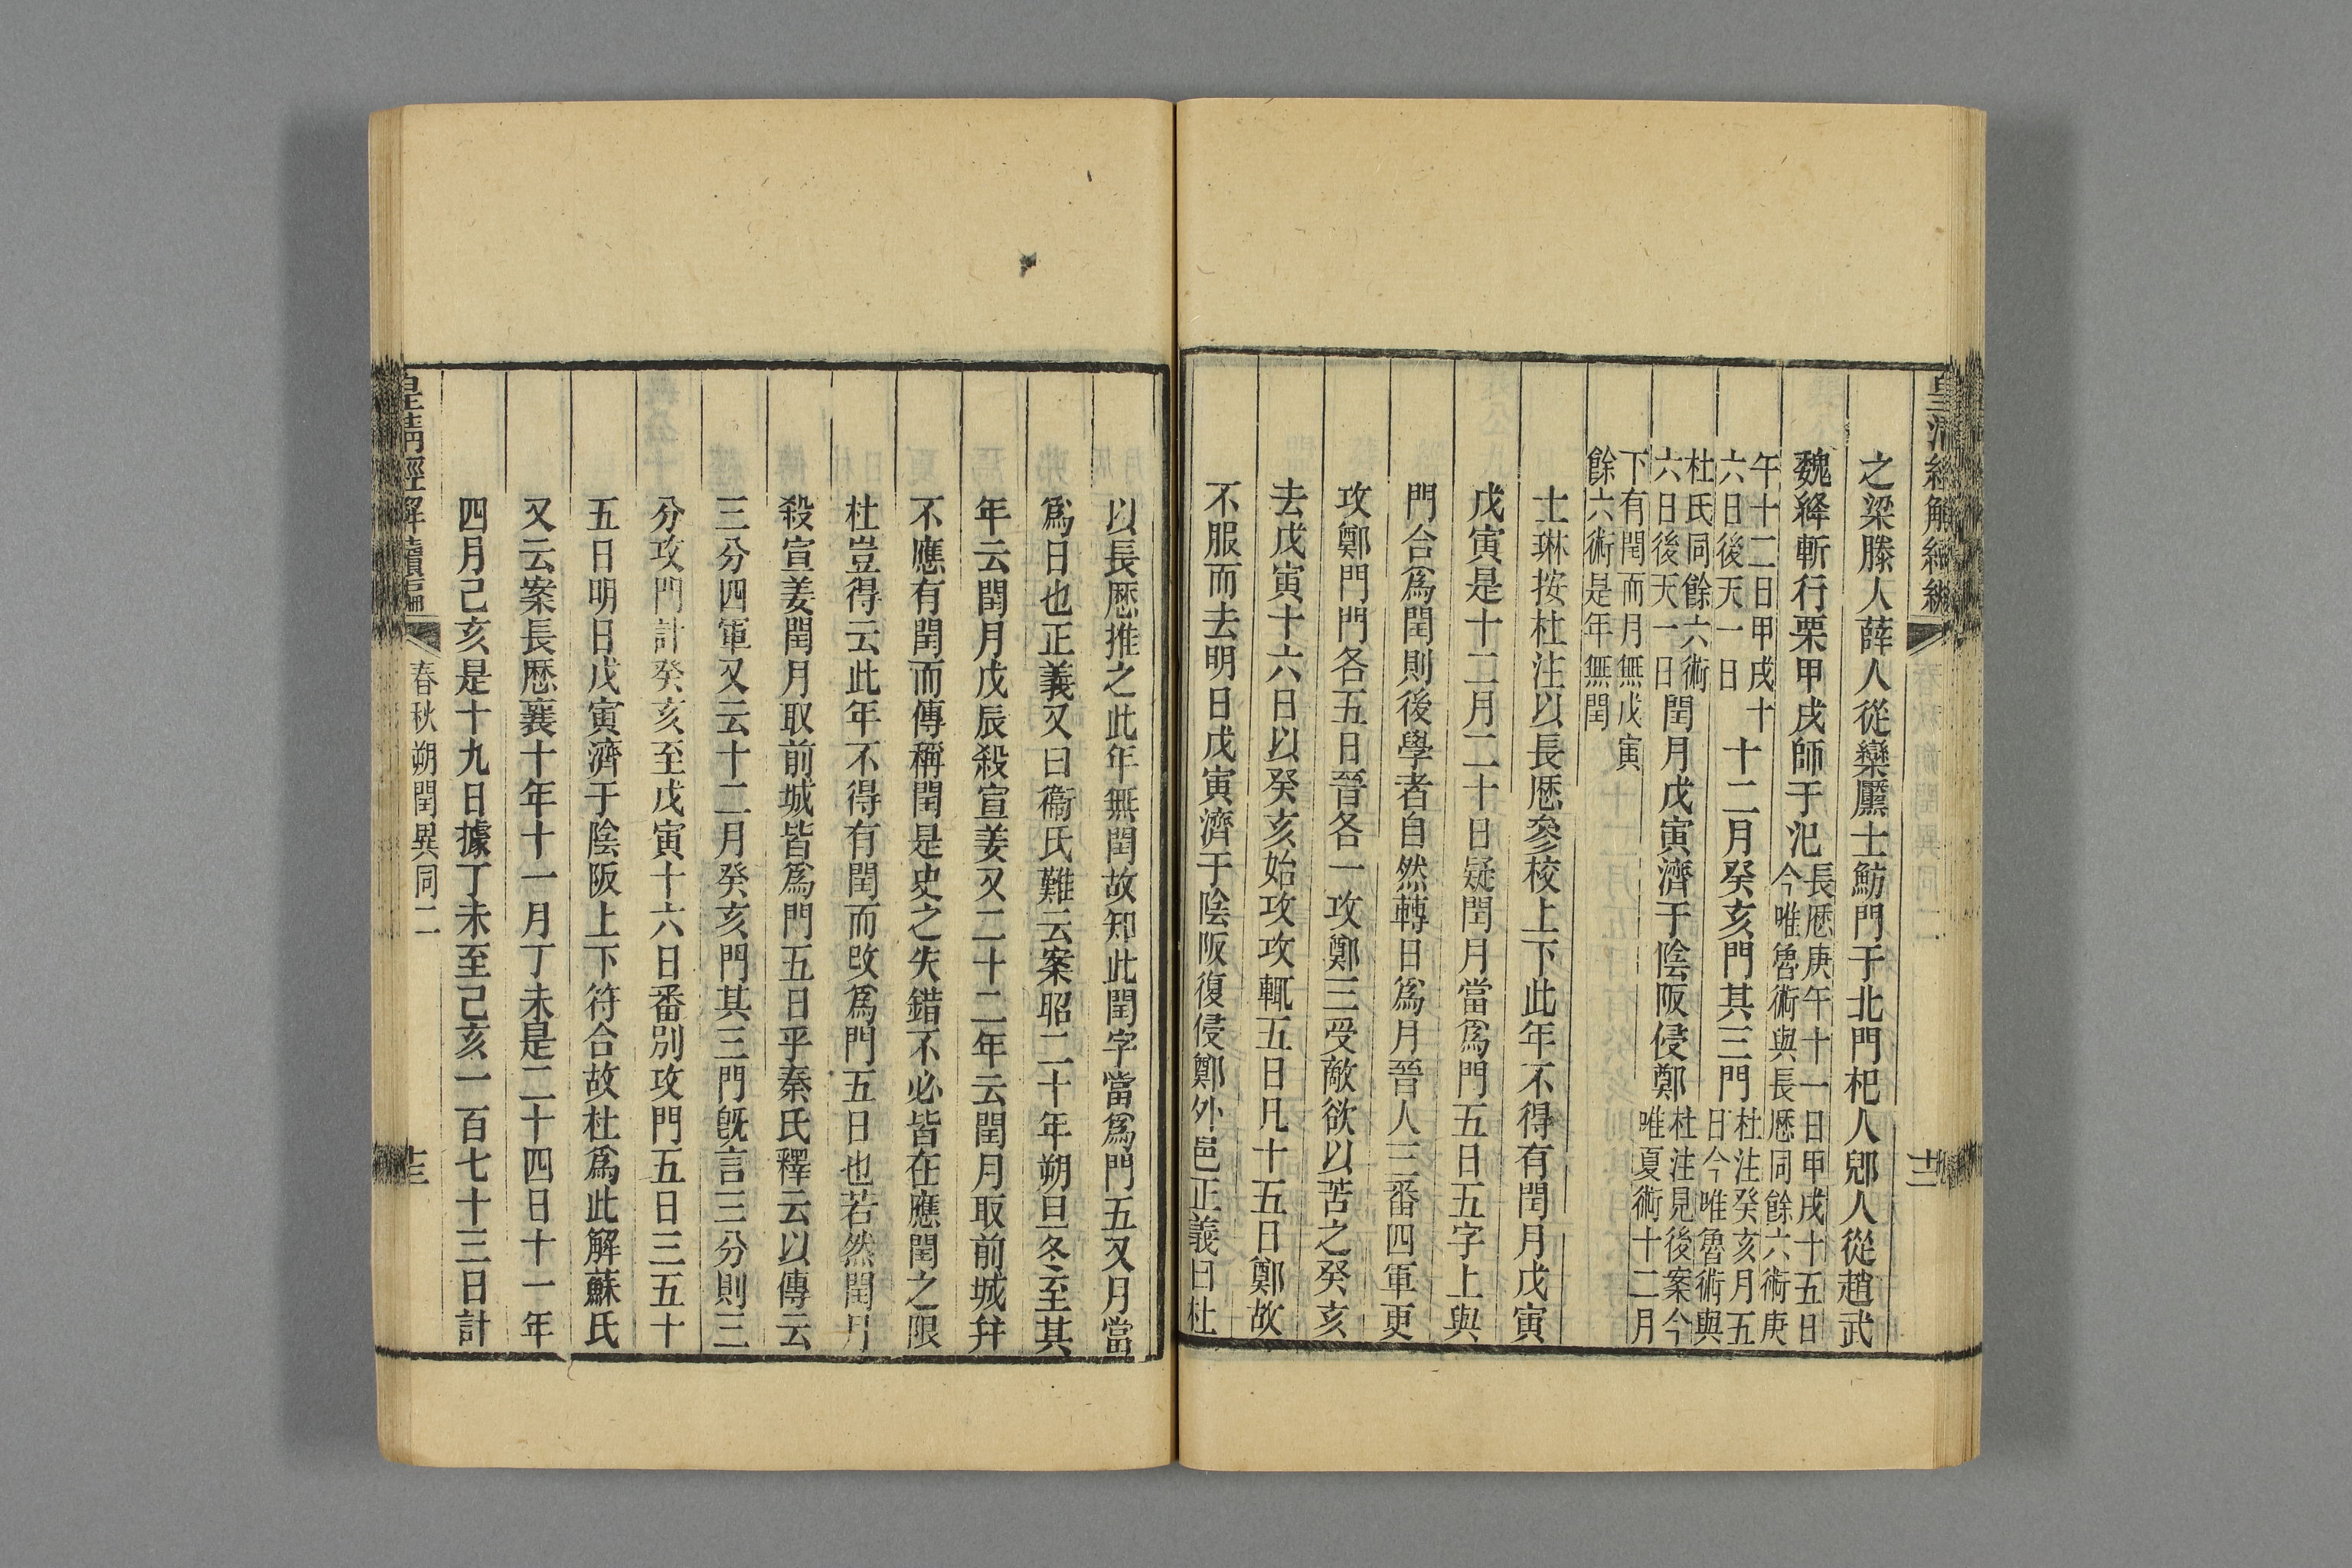 皇清經解續編
十二
之梁滕人薛人從欒黶士魴門于北門杞人郳人從趙武
魏絳斬行栗甲戌師于氾長厯庚午十一日甲戌十五日今唯魯術與長厯同餘六術庚
午十二日甲戌十六日後天一日十二月癸亥門其三門杜注癸亥月五日今唯魯術與
杜氏同餘六術六日後天一日閏月戊寅濟于陰阪侵鄭杜注見後案今唯夏術十二月
下有閏而月無戊寅餘六術是年無閏
士琳按杜注以長厯參校上下此年不得有閏月戊寅
戊寅是十二月二十日疑閏月當爲門五日五字上與
門合爲閏則後學者自然轉日爲月晉人三番四軍更
攻鄭門門各五日晉各一攻鄭三受敵欲以苦之癸亥
去戊寅十六日以癸亥始攻攻輒五日凡十五日鄭故
不服而去明日戊寅濟于陰阪復侵鄭外邑正義曰杜
以長厯推之此年無閏故知此閏字當爲門五又月當
爲日也正義又曰衞氏難云案昭二十年朔旦冬至其
年云閏月戊辰殺宣姜又二十二年云閏月取前城幷
不應有閏而傳稱閏是史之失錯不必皆在應閏之限
杜豈得云此年不得有閏而改爲門五日也若然閏月
殺宣姜閏月取前城皆爲門五日乎秦氏釋云以傳云
三分四軍又云十二月癸亥門其三門旣言三分則三
分攻門計癸亥至戊寅十六日番別攻門五日三五十
五日明日戊寅濟于陰阪上下符合故杜爲此解蘇氏
又云案長厯襄十年十一月丁未是二十四日十一年
四月己亥是十九日據丁未至己亥一百七十三日計
皇淸經解續編
春秋朔閏異同二
十三